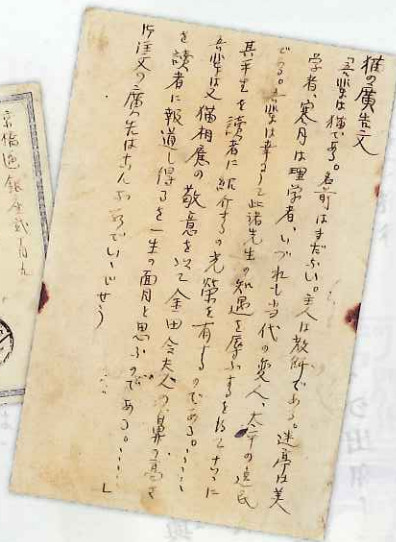 猫の廣告文
「吾輩は猫である。名前はまだない。主人は教師である。迷亭は美
学者、寒月は理学者、いづれも当代の変人、太平の逸民
である。吾輩は幸にして此諸先生の知遇を辱ふするを得てこゝに
其平生を讀者に紹介するの光榮を有するのである。……
吾輩は又猫相應の敬意を以て金田令夫人の鼻の高さ
を讀者に報道し得るを一生の面目と思ふのである。……」
広告文の廣告先はこんな所でいゝでせう
京橋區銀座